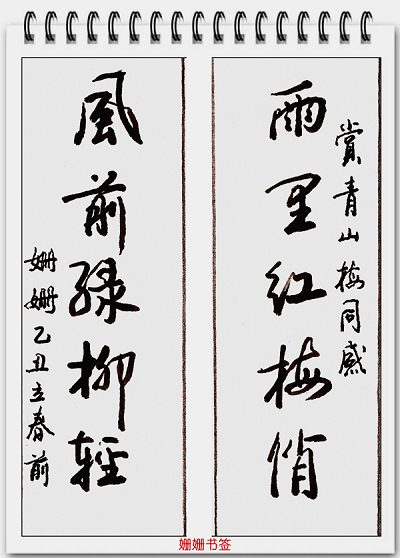 賞青山梅同感
雨里红梅俏
風前绿柳輕
姗姗乙丑立春前
姗姗书签